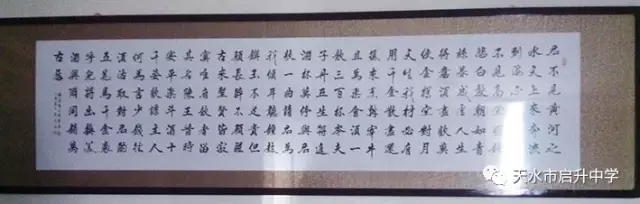 君不見黄河之
水天上來奔流
到海不復回君
不見高堂明鏡
悲白髮朝如青
絲暮成雪人生
得意須盡歡莫
使金樽空對月
天生我材必有
用千金散盡還
復來烹羊宰牛
且為樂會須一
飲三百杯岑夫
子丹丘生將進
酒杯莫停與君
歌一曲請君為
我傾耳聽鐘鼓
饌玉不足貴但
願長醉不願醒
古來聖賢皆寂
寞唯有飲者留
其名陳王昔時
宴平樂斗酒十
千恣歡謔主人
何為言少錢徑
須沽取對君酌
五花馬千金裘
呼兒將出換美
酒與爾同銷萬
古愁
天水市启升中学